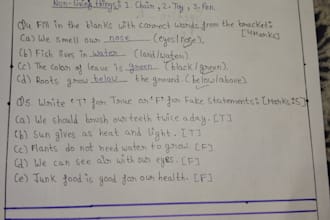 Non-living things: 1. Chair, 2. Toy, 3. Pen.
Q4. Fill in the blanks with correct words from the bracket: [4 Marks]
(a) We smell our nose (eyes/nose).
(b) Fish lives in water (land/water)
(c) The color of leave is green (black/green).
(d) Roots grow below the ground. (below/above).
Q5. Write 'T' for True or 'F' for False Statements: [Marks:5]
(a) We should brush our teeth twice a day. [T]
(b) Sun gives us heat and light. [T]
(c) Plants do not need water to grow. [F]
(d) We can see air with our eyes. [F]
(e) Junk food is good for our health. [F]